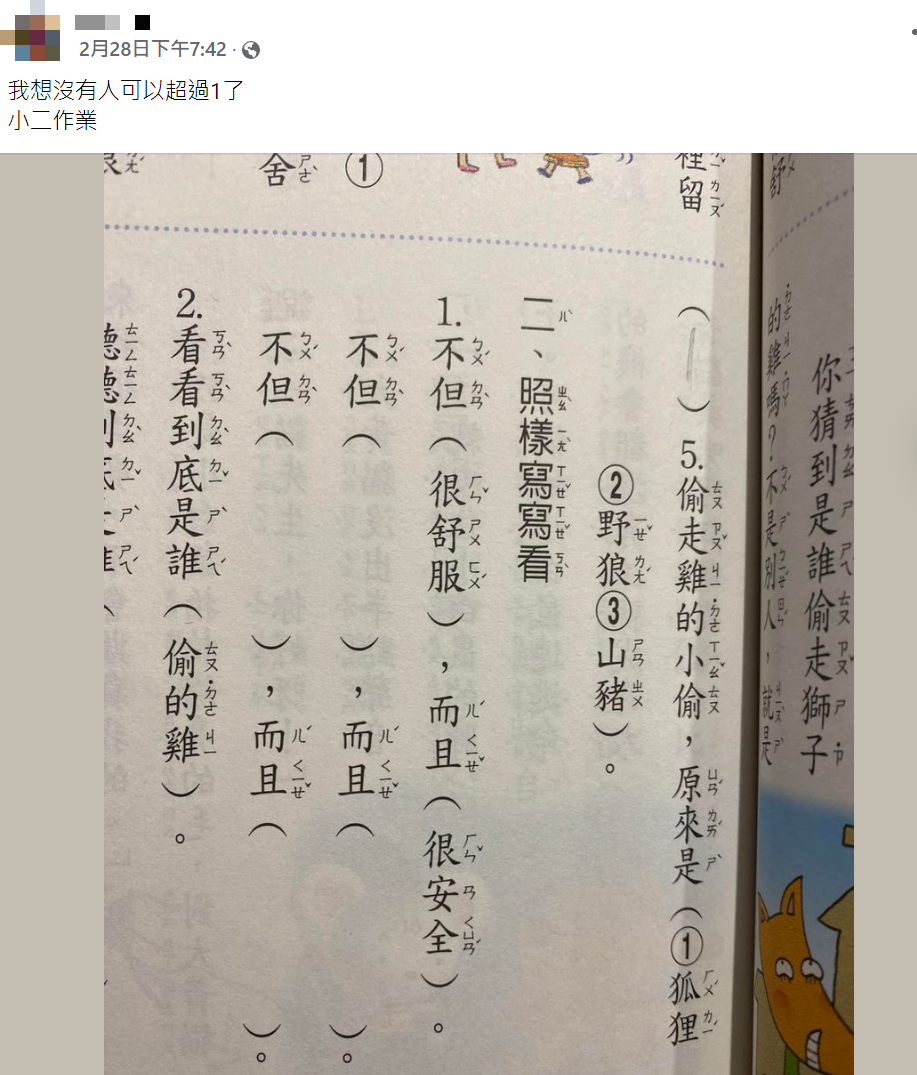 2月28日下午7:42
我想沒有人可以超過1了
小二作業
你猜到是誰偷走獅子
的雞嗎？不是別人，就是
裡留
（1）5.偷走雞的小偷，原來是（①狐狸
②野狼③山豬）。
二、照樣寫寫看
1.不但（很舒服），而且（很安全）。
①
不但（），而且（）。
舍
不但（），而且（）。
2.看看到底是誰（偷的雞）。
聽聽到底是誰（